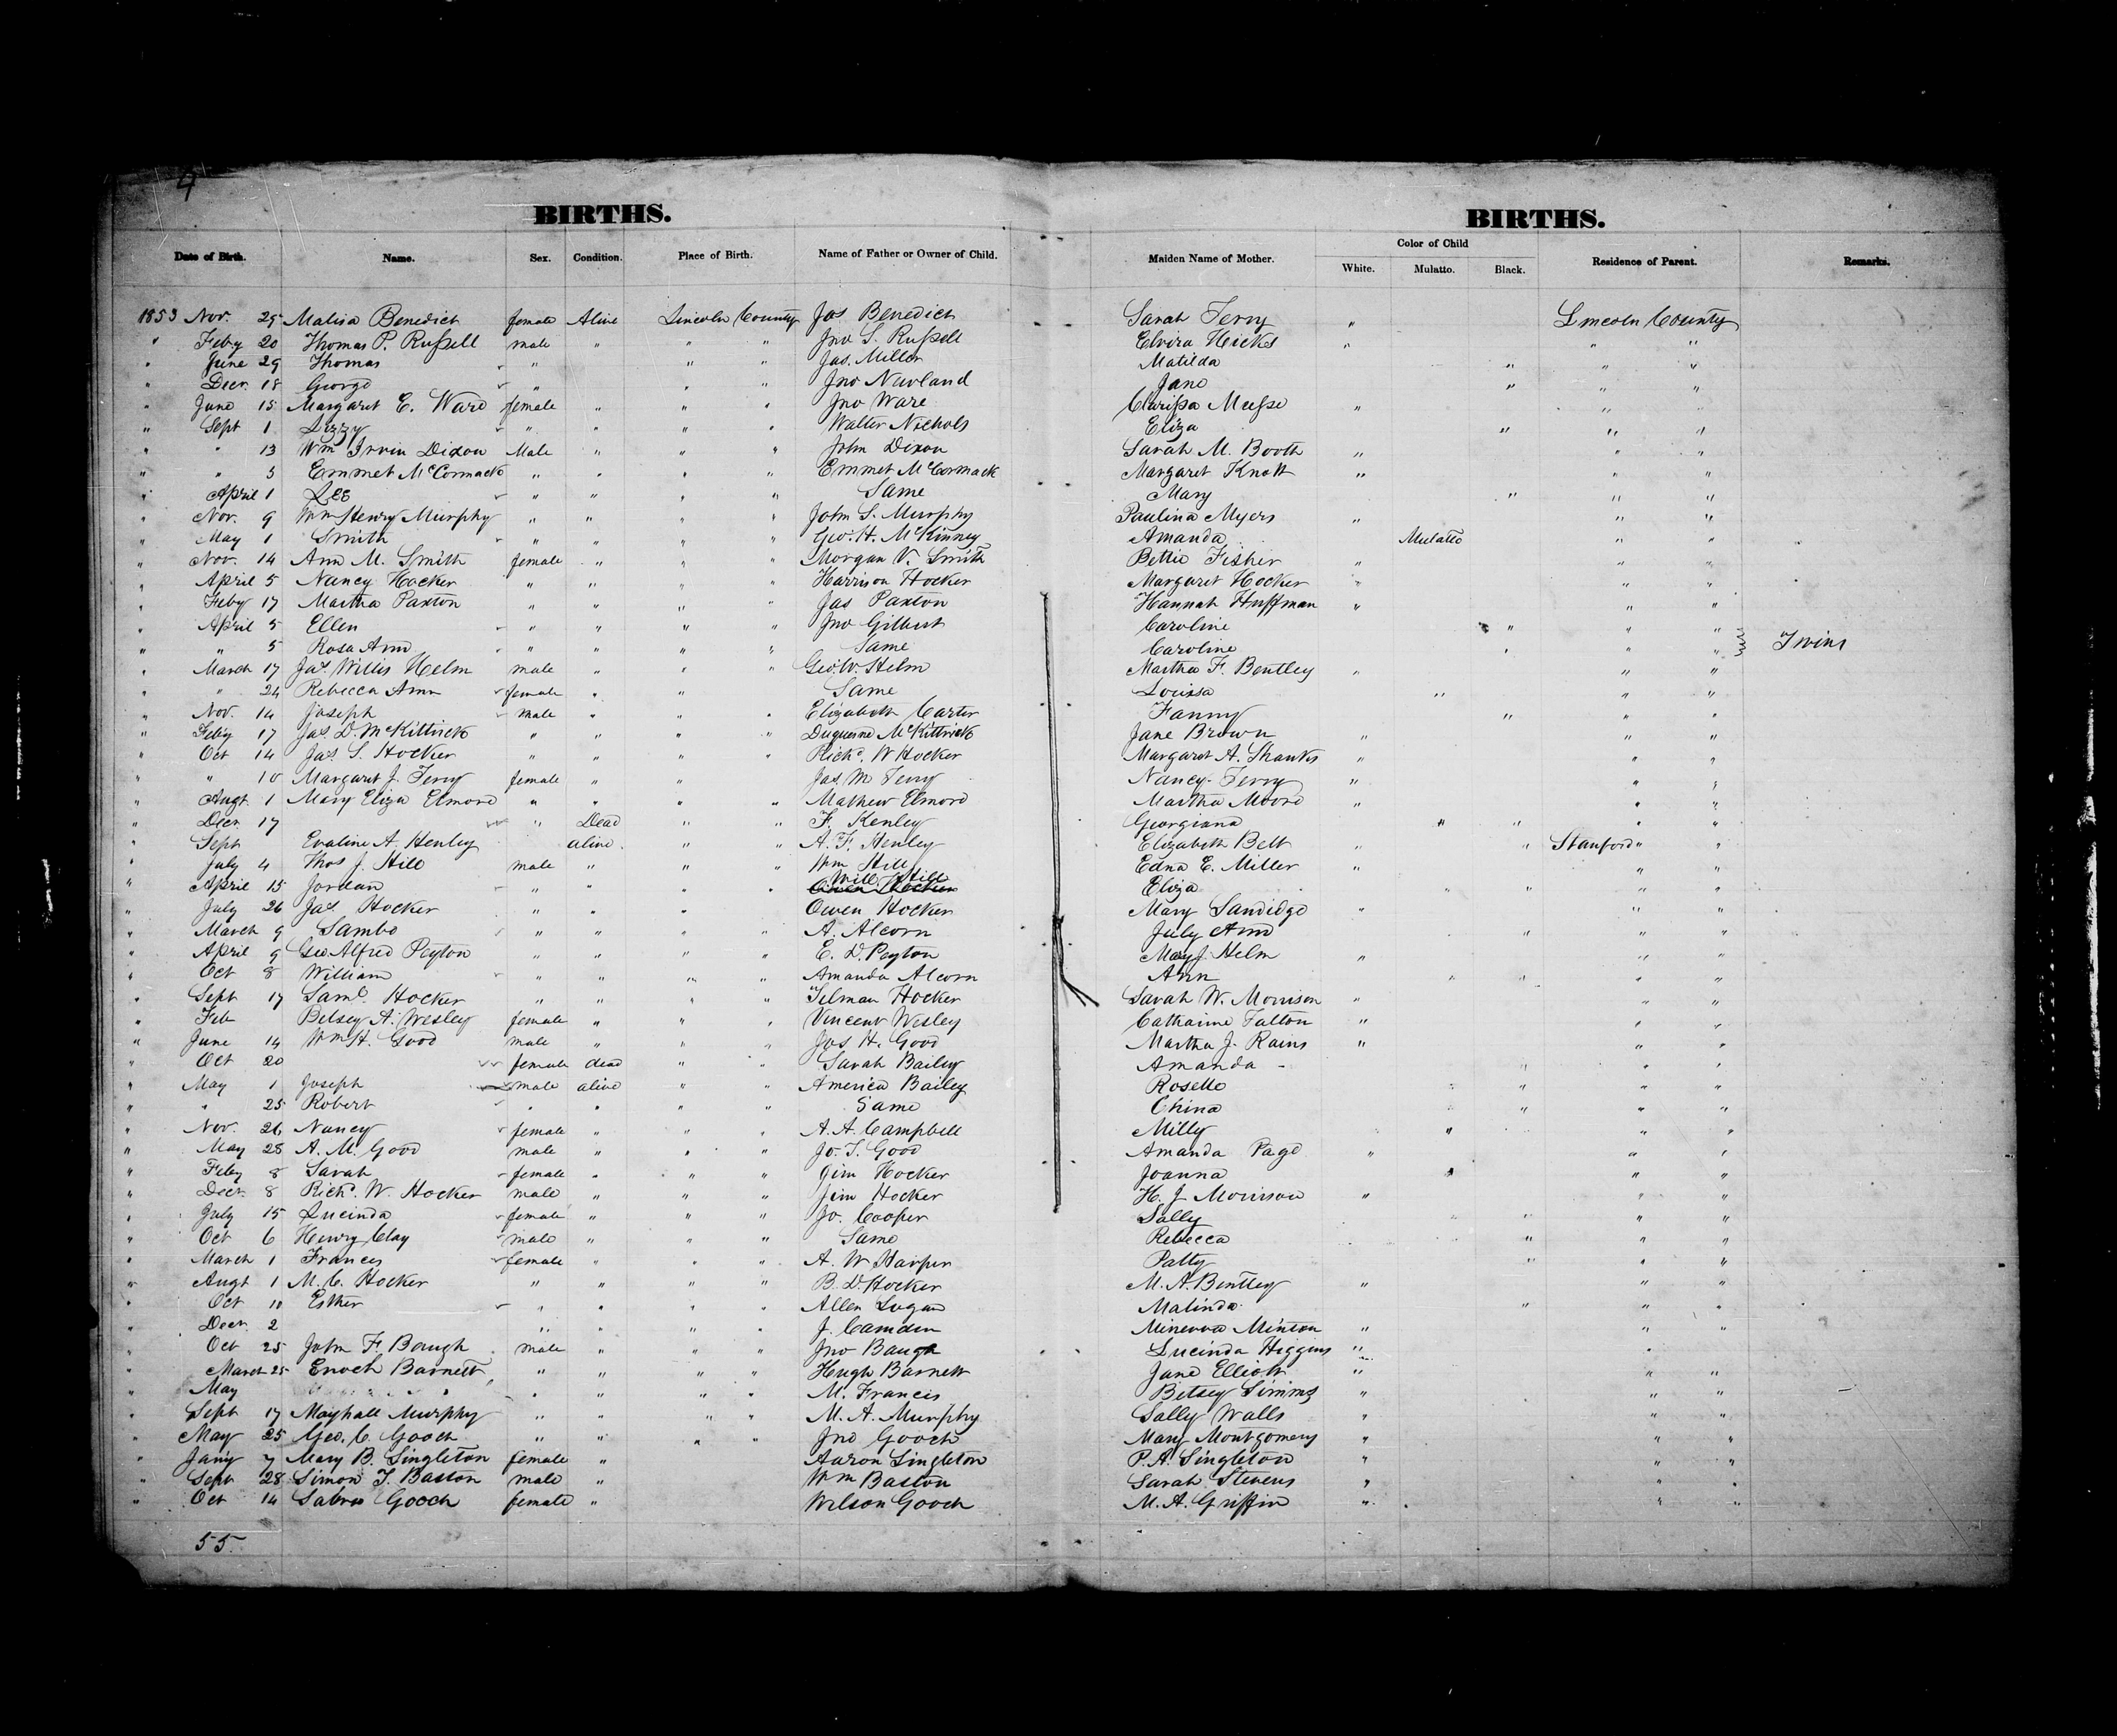 4
BIRTHS. BIRTHS.
Date of Birth. Name. Sex. Condition. Place of Birth. Name of Father or Owner of Child. Maiden Name of Mother. Color of Child White. Mulatto. Black. Residence of Parent. Remarks.
1853 Nov. 25 Malisa Benedict female Alive Lincoln County Jas Benedict Sarah Terry " Lincoln County
" Feby 20 Thomas P. Russell male " " " Jno S. Russell Elvira Hicks " " "
" June 29 Thomas " " " Jas. Miller Matilda " " "
" Decr. 18 George " " " Jno Newland Jane " " "
" June 15 Margaret E. Ware female " " " Jno Ware " " "
" Sept 1 Lizzy " " " " Walter Nichols Eliza " " "
" " 13 Wm Irvin Dixon Male " " " John Dixon Sarah M. Booth " " "
" " 3 Emmet McCormack " " " " Emmet McCormack Margaret Knott " " "
" April 1 Lee " " " " Same Mary " " "
" Nov. 9 Wm Henry Murphy " " " " John S. Murphy Paulina Myers " " "
" May 1 Smith " " " " Geo. H. McKinney Amanda Mulatto " "
" Nov. 14 Ann M. Smith female " " " Morgan V. Smith Bettie Fisher " " "
" April 5 Nancy Hocker " " " " Harrison Hocker Margaret Hocker " " "
" Feby 17 Martha Paxton " " " " Jas Paxton Hannah Huffman " " "
" April 5 Ellen " " " " Jno Gilbert Caroline " " "
" " 5 Rosa Ann " " " " Same Caroline " " " Twins
" March 17 Jas. Willis Helm male " " " Geo. W. Helm Martha F. Bentley " " "
" " 24 Rebecca Ann female " " Same Louisa " " "
" Nov. 14 Joseph male " " " Elizabeth Carter Fanny " " "
" Feby 17 Jas. D. McKittrick " " " " Duquesne McKittrick Jane Brown " " "
" Oct 14 Jas. S. Hocker " " " " Richd. W Hocker Margaret A. Shanks " " "
" " 10 Margaret J. Terry female " " Jas M Terry Nancy Terry " " "
" Augt. 1 Mary Eliza Elmore " " " " Mathew Elmore Martha Moore " " "
" Decr. 17 " Dead " " F. Kenley Georgiana " " " "
" Sept Evaline A. Henley alive " " A. F. Henley Elizabeth Bell " " Stanford " "
" July 4 Thos J. Hill male " " " Wm Hill Edna E. Miller " " "
" April 15 Jordan " " " " Will Hill Eliza " " " "
" July 26 Jas. Hocker " " " Owen Hocker Mary Sandidge " " "
" March 9 Sambo " " " " A. Alcorn July Ann " " "
" April 9 Geo Alfred Peyton " " " " E. D. Peyton Mary J. Helm " " "
" Oct 8 William " " " " Amanda Alcorn Ann " " " "
" Sept 17 Saml. Hocker " " " " Tilman Hocker Sarah W. Morrison " " "
" Feb Betsey A. Wesley female " " " Vincent Wesley Catharine " " "
" June 14 Wm H. Good male " " " Jas H. Good Martha J. Rains " " "
" Oct 20 female dead " " Sarah Bailey Amanda " " "
" May 1 Joseph male alive " " America Bailey " " "
" " 25 Robert " " " " Same China " " "
" Nov. 26 Nancy female " " " A. A. Campbell Milly " " "
" May 28 A. M. Good male " " " Jo. T. Good Amanda Page " " "
" Feby 8 Sarah female " " " Jim Hocker Joanna " " "
" Decr. 8 Richd. W. Hocker male " " " Jim Hocker H. J. Morrison " " "
" July 15 Lucinda female " " " Jo. Cooper Sally " " " "
" Oct 6 Henry Clay male " " " Same Rebecca " " "
" March 1 Frances female " " " A. W Harper Patty " " "
" Augt 1 M. C. Hocker " " " " B. D. Hocker M. A. Bentley " " "
" Oct 10 Esther " " " " Allen Logan Malinda " " "
" Decr. 2 " " " " J. Camden Minerva Minton " " "
" Oct 25 John F. Baugh male " " " Jno Baugh Lucinda Higgins " "
" March 25 Enoch Barnett " " " " Hugh Barnett Jane Elliott " " "
" May " " " " M. Francis Betsey Simms " " "
" Sept 17 Mayhall Murphy " " " " M. A. Murphy Sally Walls " " "
" May 25 Geo. C. Gooch " " " " Jno Gooch Mary Montgomery " " "
" Jany 7 Mary B. Singleton female " Aaron Singleton P. A. Singleton " " "
" Sept 28 Simon T. Baston male " Wm Baston Sarah Stevens " " "
" Oct 14 Gooch female " Wilson Gooch M. A. Griffin " " "
55